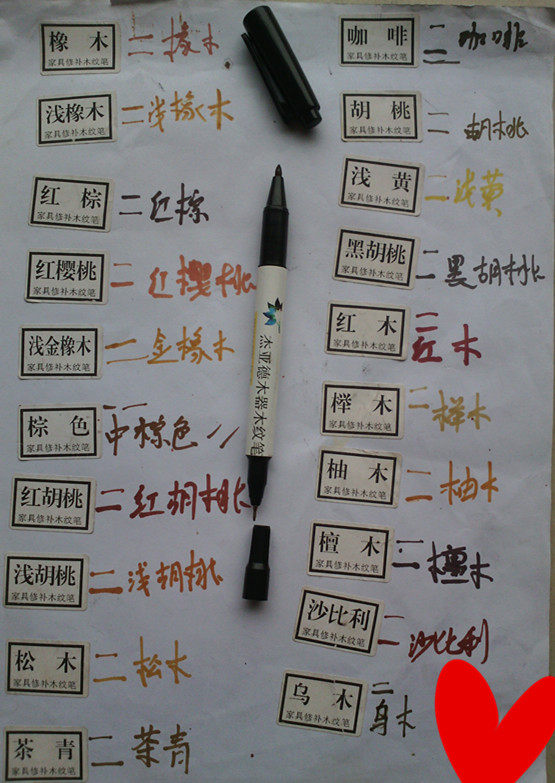 橡木
家具修补木纹笔
二橡木
浅橡木
家具修补木纹笔
二浅橡木
红棕
家具修补木纹笔
二红棕
红樱桃
家具修补木纹笔
二红樱桃
浅金橡木
家具修补木纹笔
二金橡木
棕色
家具修补木纹笔
中棕色
红胡桃
家具修补木纹笔
二红胡桃
浅胡桃
家具修补木纹笔
二浅胡桃
松木
家具修补木纹笔
二松木
茶青
家具修补木纹笔
二茶青
杰亚德木器木纹笔
咖啡
家具修补木纹笔
二咖啡
胡桃
家具修补木纹笔
二胡桃
浅黄
家具修补木纹笔
二浅黄
黑胡桃
家具修补木纹笔
二黑胡桃
红木
家具修补木纹笔
二红木
榉木
家具修补木纹笔
二榉木
柚木
家具修补木纹笔
二柚木
檀木
家具修补木纹笔
二檀木
沙比利
家具修补木纹笔
二沙比利
乌木
家具修补木纹笔
二乌木